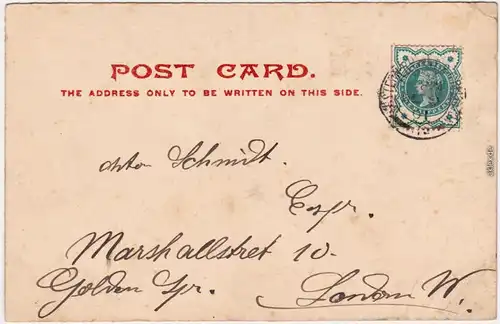 POST CARD.
THE ADDRESS ONLY TO BE WRITTEN ON THIS SIDE.
Otto Schmidt.
Esqr.
Marshallstret 10.
Golden Sqr.
London W.